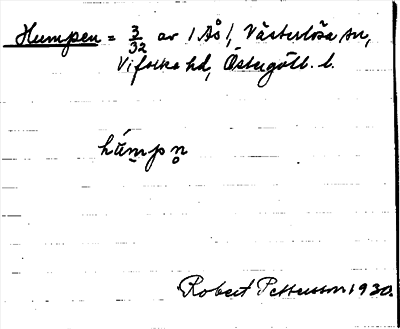 Humpen = 3/32 av /Ås/, Västerlösa sn,
Vifolka hd, Östergötl. l.
húmpn̥
Robert Pettersson 1930.